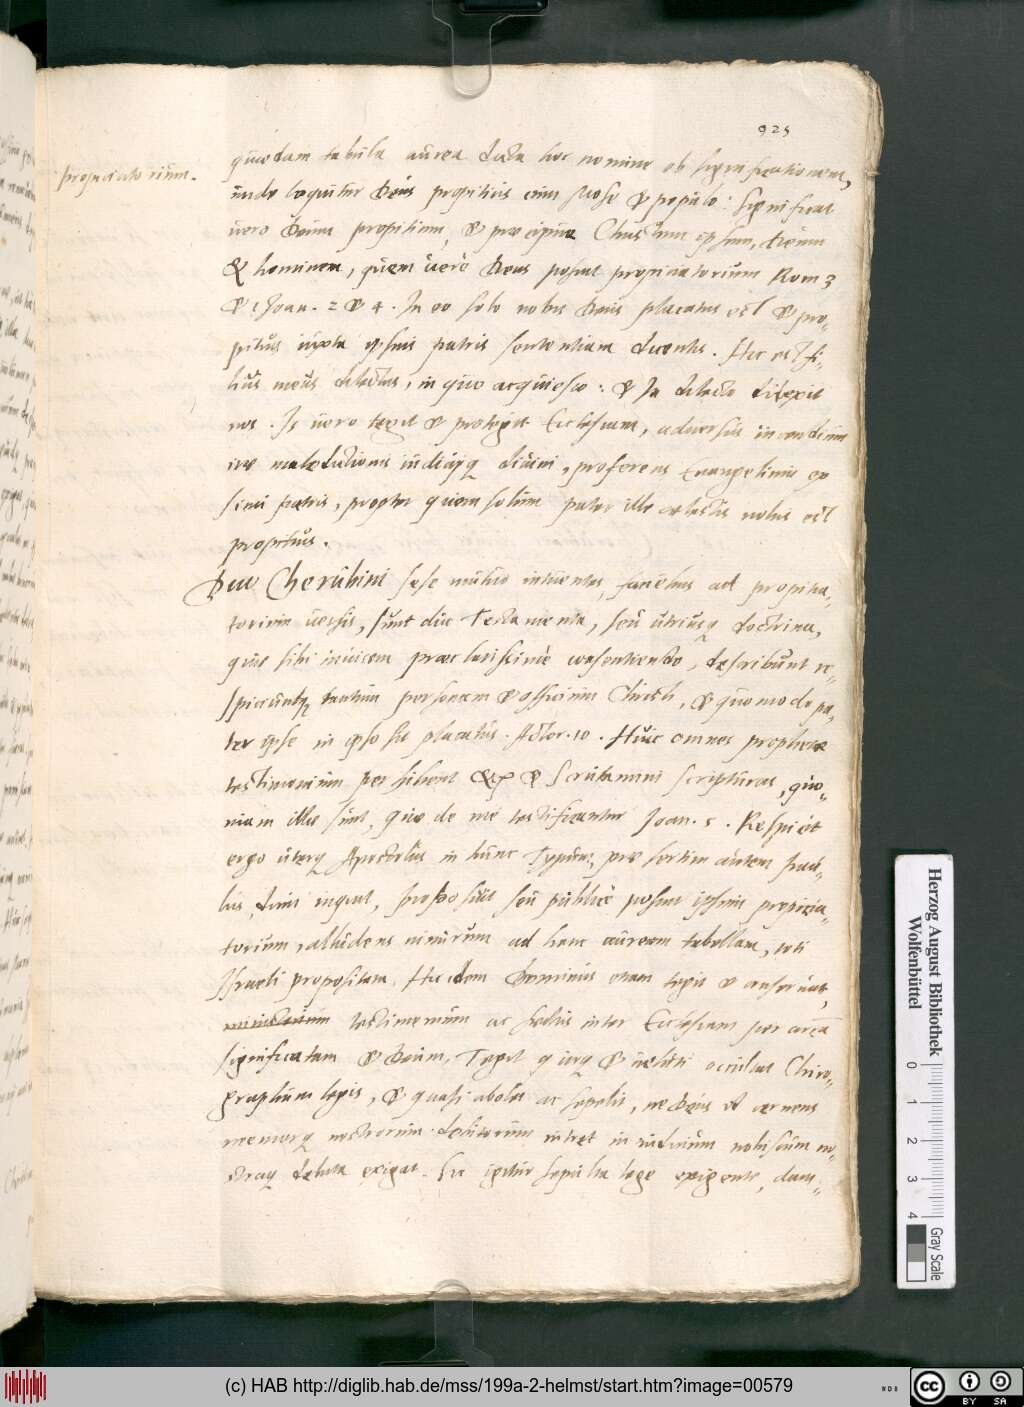 925
propiciatorium.
quaedam tabula aurea dicta hoc nomine ob significationem,
unde loquitur Deus propitius cum Mose & populo: significat
vero Deum propitium, & praecipue Christum ipsum, Deum
& hominem, quem vere Deus posuit propiciatorium Rom 3
& 1 Joan. 2 & 4. In eo solo nobis Deus placatus est & pro-
pitius iuxta ipsius patris sententiam dicentis. Hic est fi-
lius meus dilectus, in quo acquiesco: & In dilecto dilexit
nos. Is vero tegit & protegit Ecclesiam, adversus incendium
irae maledictionis iudicijq divini, proferens Euangelium ex
sinu patris, propter quem solum pater ille caelestis nobis est
propitius.
Duo Cherubini sese mutuo intuentes, faciebus ad propitia-
torium versis, sunt duo Testamenta, seu utriusq doctrina,
quae sibi invicem praeclarissime consentiendo, describunt re-
spiciuntq tantum personam & officium Christi, & quomodo pa-
ter ipse in ipso sit placatus. Actor. 10. Huic omnes prophetae
testimonium perhibent &c & Scrutamini scripturas, quo-
niam illae sunt, quae de me testificantur Joan. 5. Respicit
ergo uterq Apostolus in hunc Typum, praesertim autem Pau-
lus, dum inquit, proposuit seu publice posuit ipsum propicia-
torium, alludens nimirum ad hanc auream tabellam, toti
Israeli propositam. Hic idem Dominus etiam tegit & conservat,
ministerium testimonium ac foedus inter Ecclesiam per arcam
significatam & Deum. Tegit quoq & veluti occultat Chiro-
graphum legis, & quasi abolet ac sepelit, ne Deus id cernens
memorq nostrorum debitorum intret in iudicium nobiscum no-
straq debita exigat. Sic igitur sepulta lege exigente, dam-
Herzog August Bibliothek
Wolfenbüttel
0 1 2 3 4
Gray Scale
(c) HAB http://diglib.hab.de/mss/199a-2-helmst/start.htm?image=00579
HAB
cc BY SA